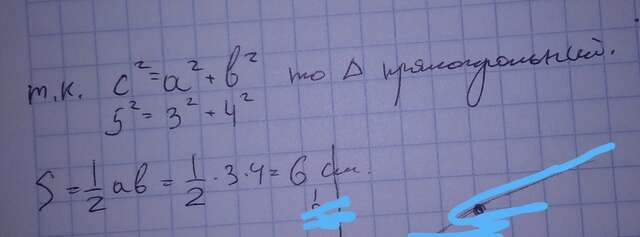 т.к. c² = a² + b² то Δ прямоугольный.
5² = 3² + 4²
S = 1/2 ab = 1/2 · 3 · 4 = 6 см.